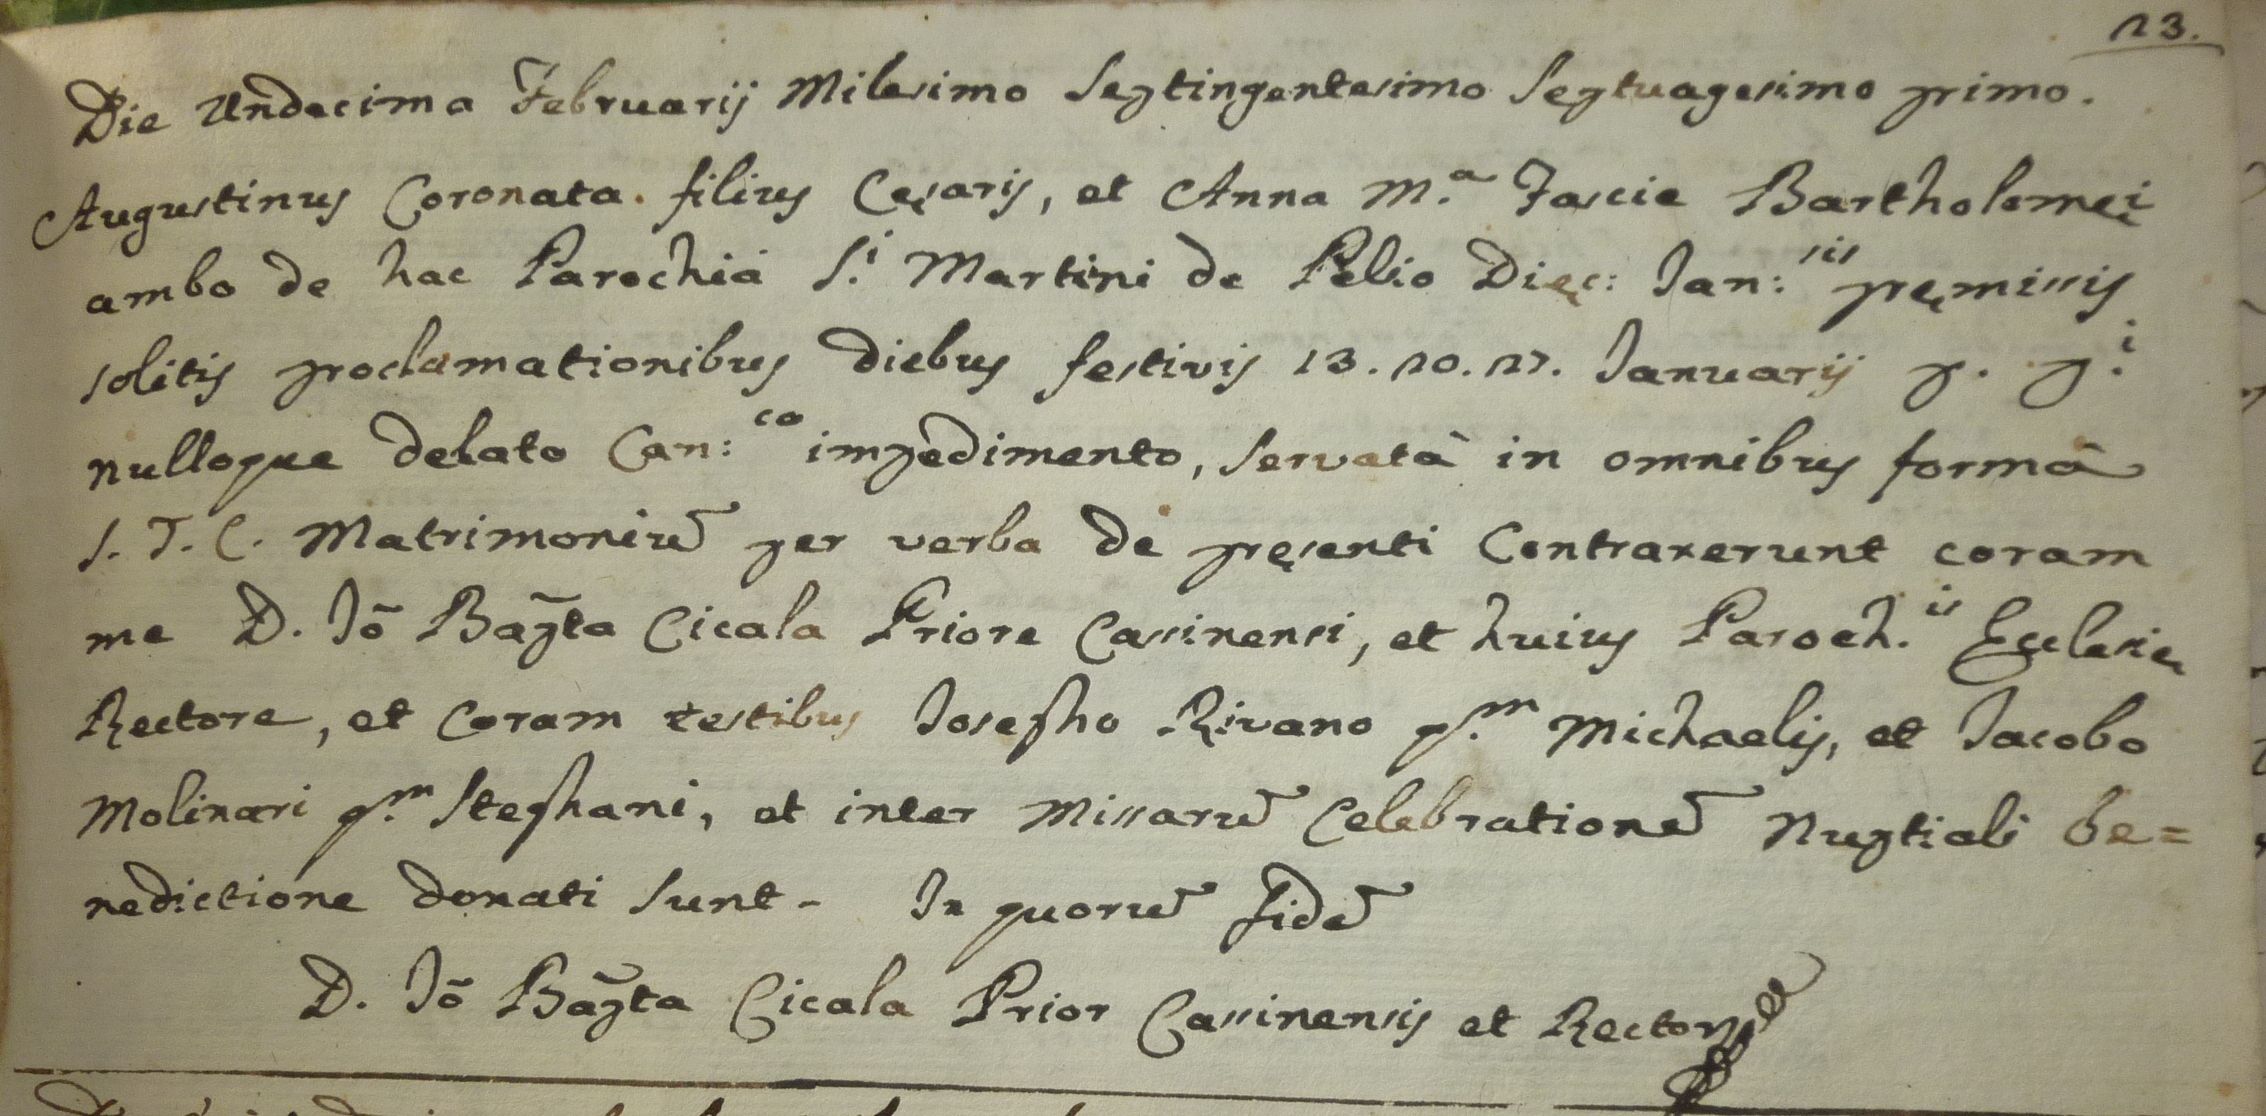 23.
Die Undecima Februarij Milesimo Septingentesimo Septuagesimo primo.
Augustinus Coronata filius Cęsaris, et Anna M.ª Fascie Bartholomęi
ambo de hac Parochiâ S.i Martini de Pelio Dięc: Jan:sis pręmissis
solitis proclamationibus diebus festivis 13. 20. 27. Januarij p. p.i
nulloque delato Can:co impedimento, servatâ in omnibus formâ
S. T. C. Matrimoniũ per verba de pręsenti Contraxerunt coram
me D. Jõ Bap̃ta Cicala Priore Cassinensi, et huius Paroch.is Ecclesię
Rectore, et Coram testibus Josepho Rivano q.m Michaelis, et Jacobo
Molinari q.m Stephani, et inter Missarũ Celebrationẽ Nuptiali be=
nedictione donati sunt - In quorũ fidẽ
D. Jõ Bap̃ta Cicala Prior Cassinensis et Rector